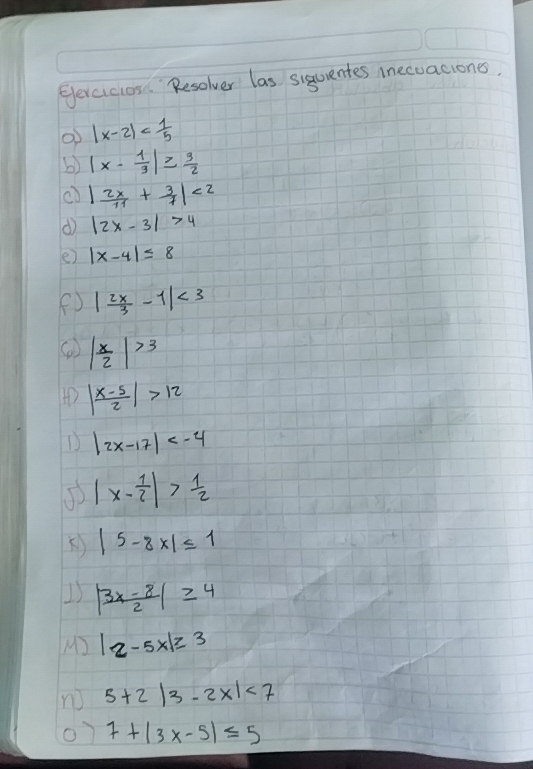 Ejercicios. Resolver las siguientes inecuaciones.
a) |x-2| < 1/5
b) |x - 1/3| ≥ 3/2
c) |2x/11 + 3/7| < 2
d) |2x - 3| > 4
e) |x-4| ≤ 8
f) |2x/3 - 1| < 3
G) |x/2| > 3
H) |x-5/2| > 12
I) |2x-17| < -4
J) |x - 1/2| > 1/2
K) |5-8x| ≤ 1
L) |3x-8/2| ≥ 4
M) |2-5x| ≥ 3
n) 5+2|3-2x| < 7
o) 7+|3x-5| ≤ 5